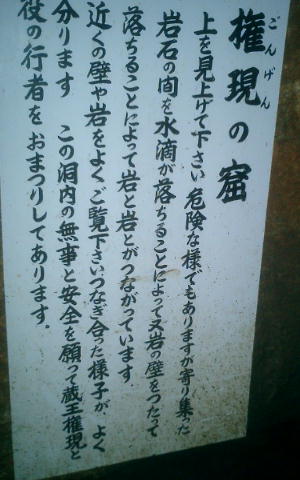 権現の窟
ごんげん
上を見上げて下さい危険な様でもありますが寄り集った
岩石の間を水滴が落ちることによって又岩の壁をつたって
落ちることによって岩と岩とがつながっています
近くの壁や岩をよくご覧下さいつなぎ合った様子が、よく
分ります この洞内の無事と安全を願って蔵王権現と
役の行者をおまつりしてあります。